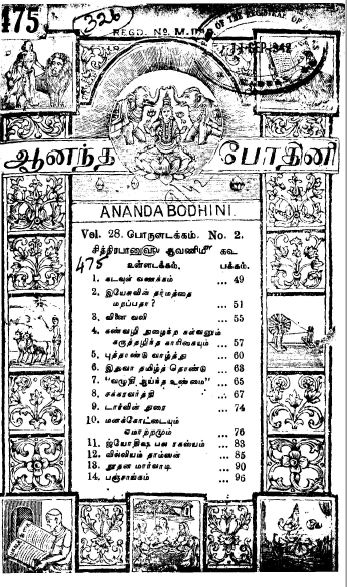 475
326
REGD. No. M.
OF THE REGISTRAR OF
SEP 1942
ஆனந்த போதினி
ANANDA BODHINI.
Vol. 28. பொருளடக்கம். No. 2.
சித்திரபானு௵ ஆவணி௴ கூ௨
475
உள்ளடக்கம். பக்கம்.
1. கடவுள் வணக்கம் ... 49
2. இயேசுவின் தர்மத்தை
மறப்பதா? ... 51
3. வினை வலி ... 55
4. கண்வழி அழைத்த கள்வனும்
கருத்தழிந்த காரிகையும் ... 57
5. புத்தாண்டு வாழ்த்து ... 60
6. இதுவா தமிழ்த் தொண்டு ... 63
7. "வழுதி ஆய்ந்த உண்மை" ... 65
8. சக்கரவர்த்தி ... 67
9. டார்வின் துரை ... 74
10. மனக்கோட்டையும்
ஏமாற்றமும் ... 76
11. ஜ்யோதிஷ பல ரகஸ்யம் ... 83
12. வில்லியம் தாம்ஸன் ... 85
13. நூதன மார்வாடி ... 90
14. பஞ்சாங்கம் ... 96